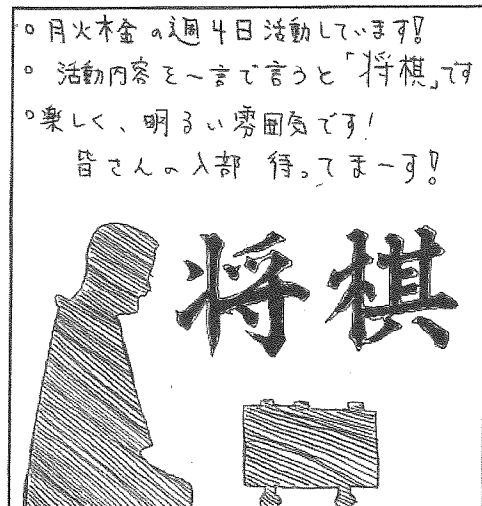 ◦月火木金の週4日活動しています!
◦活動内容を一言で言うと「将棋」です
◦楽しく、明るい雰囲気です!
皆さんの入部 待ってまーす!
将棋